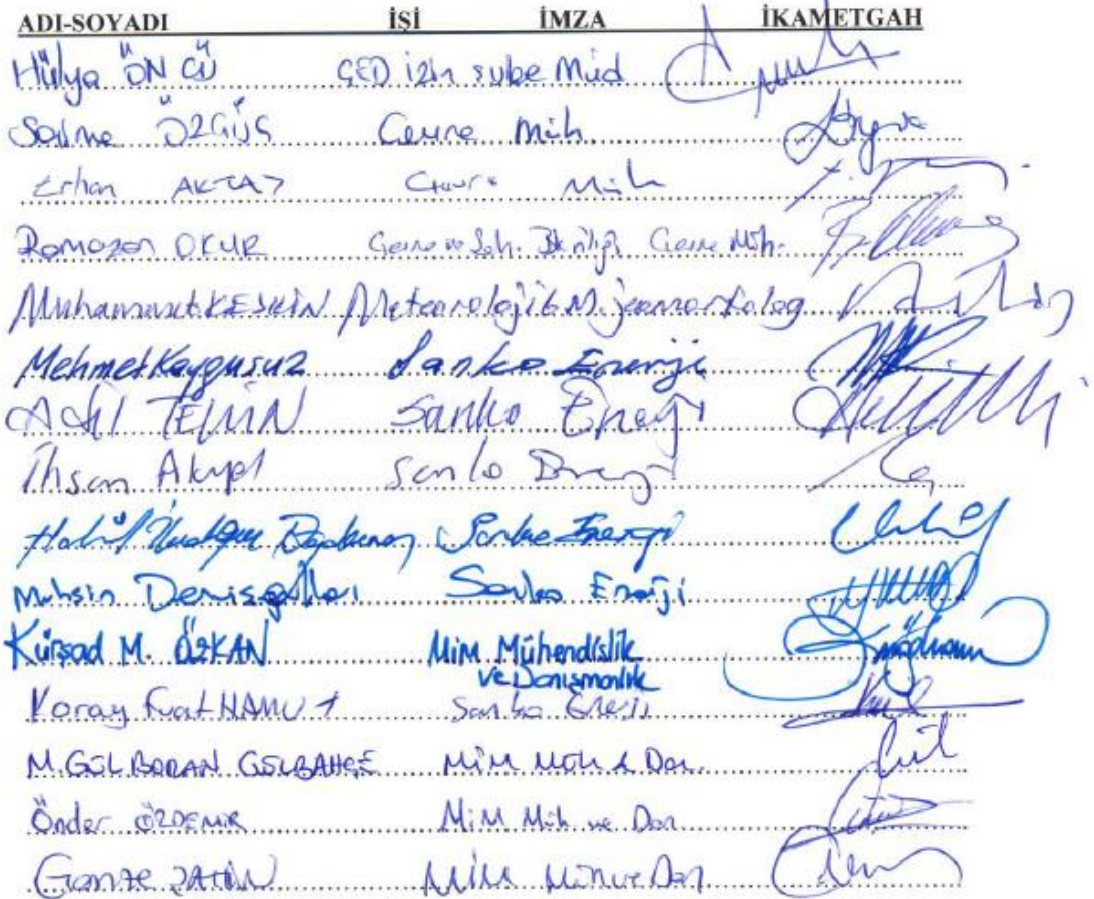 ADI-SOYADI İŞİ İMZA İKAMETGAH
Hülya ÖNCÜ ÇED izin şube Müd
Salme ÖZGÜŞ Çevre Müh.
Erhan AKTAŞ Çevre Müh
Ramazan OKUR Çevre ve Şeh. Çevre Müh.
Muhammet KESKİN Meteoroloji 6. M. jeomorfolog
Mehmet Kaygusuz Sanko Enerji
Adil TEMİN Sanko Enerji
İhsan Akyol Sanko Enerji
Halil Sanko Enerji
Muhsin Sanko Enerji
Kürşad M. ÖZKAN MİM Mühendislik
ve Danışmanlık
Koray Fuat HAMUT Sanko Enerji
M. GÜLBORAN GÜLBAHÇE MİM Müh & Dan.
Önder ÖZDEMİR MİM Müh ve Dan
Gamze ŞAHİN MİM Müh ve Dan